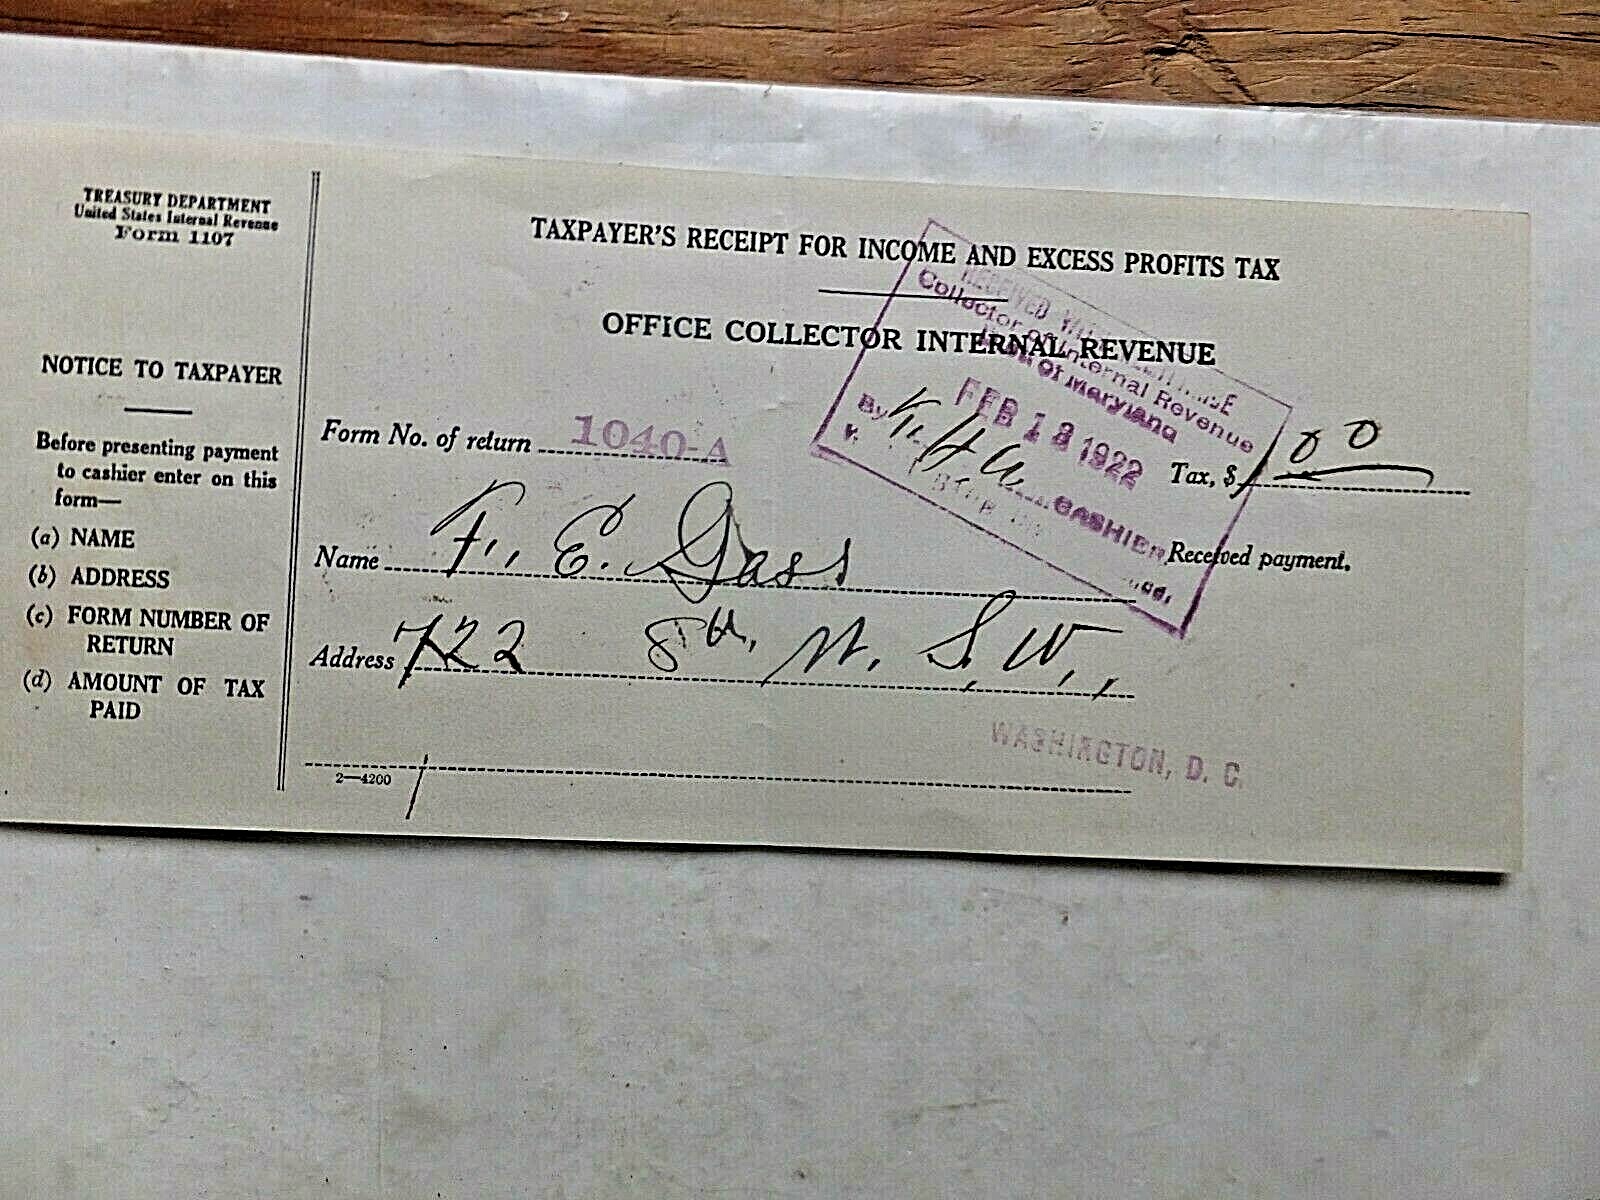 TREASURY DEPARTMENT
United States Internal Revenue
Form 1107
NOTICE TO TAXPAYER
Before presenting payment
to cashier enter on this
form—
(a) NAME
(b) ADDRESS
(c) FORM NUMBER OF
RETURN
(d) AMOUNT OF TAX
PAID
TAXPAYER'S RECEIPT FOR INCOME AND EXCESS PROFITS TAX
OFFICE COLLECTOR INTERNAL REVENUE
RECEIVED
Collector of Internal Revenue
of Maryland
FEB 18 1922
By
CASHIER
Form No. of return 1040-A
Tax, $ 00
Name F. E. Gass
Received payment.
Address 722 8th, St. S. W.,
WASHINGTON, D. C.
2—4200